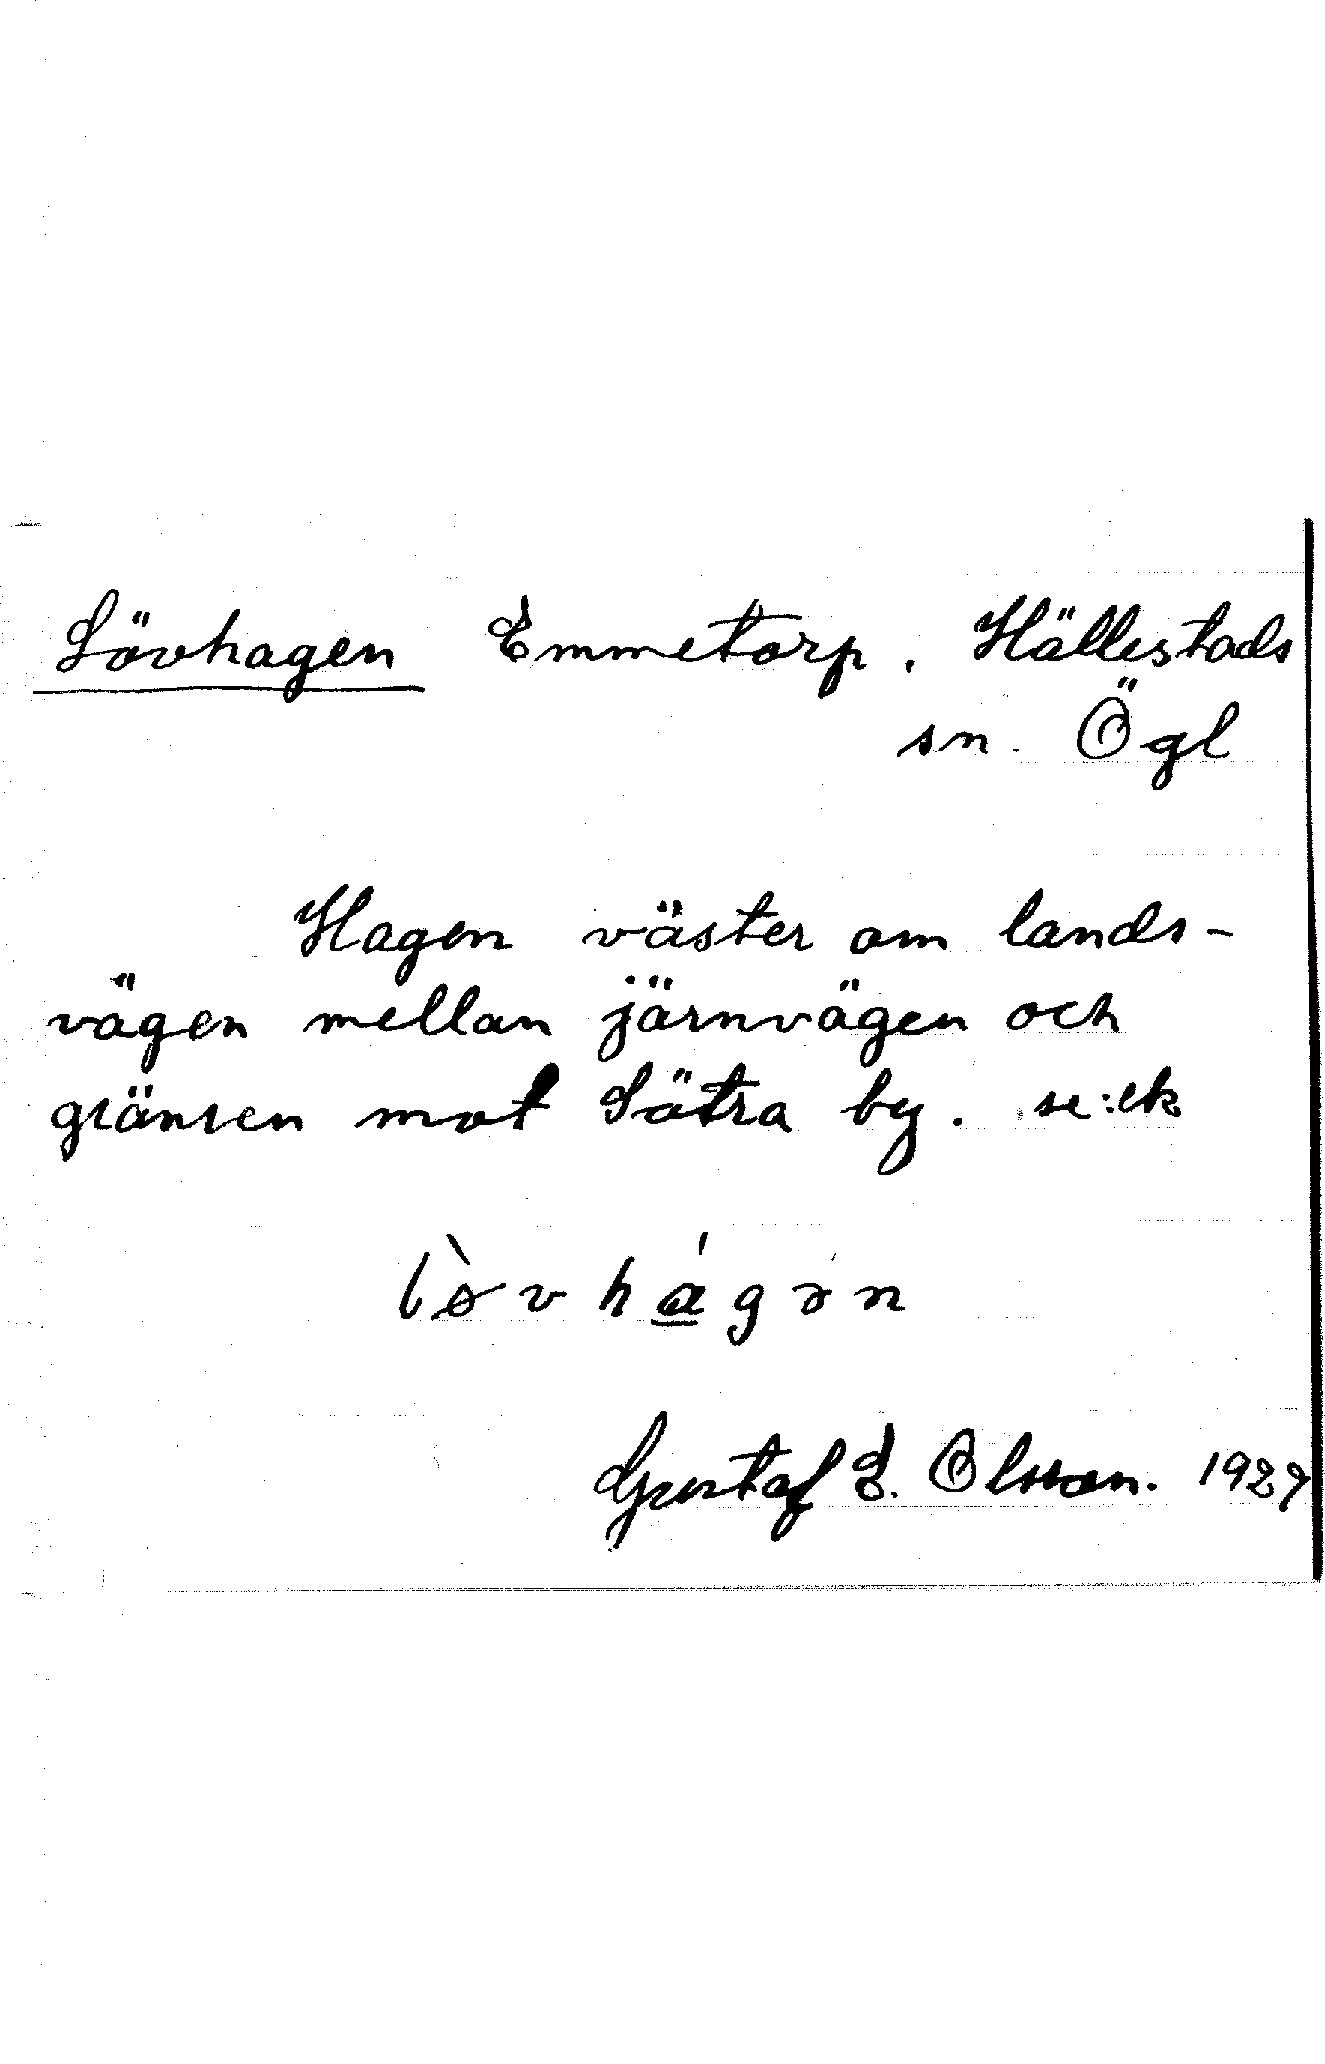 Lövhagen Emmetorp. Hällestads
sn. Ögl
Hagen väster om lands-
vägen mellan järnvägen och
gränsen mot Sätra by. se:ek
lø̀vhágən
Gustaf E. Olsson. 1929